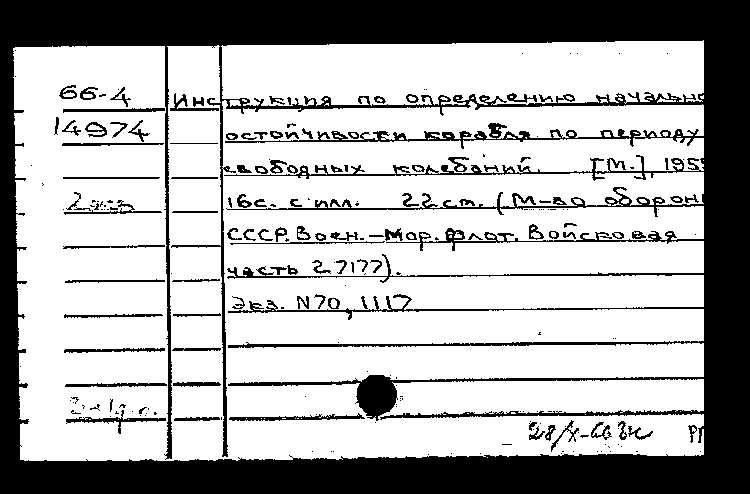 66-4 Инструкция по определению начально
14974 остойчивости корабля по периоду
свободных колебаний. [М.], 195
2 экз 16с. с илл. 22 см. (М-во оборон
СССР. Воен.-Мор. флот. Войсковая
часть 27177).
Экз. N70, 1117
28/X-66